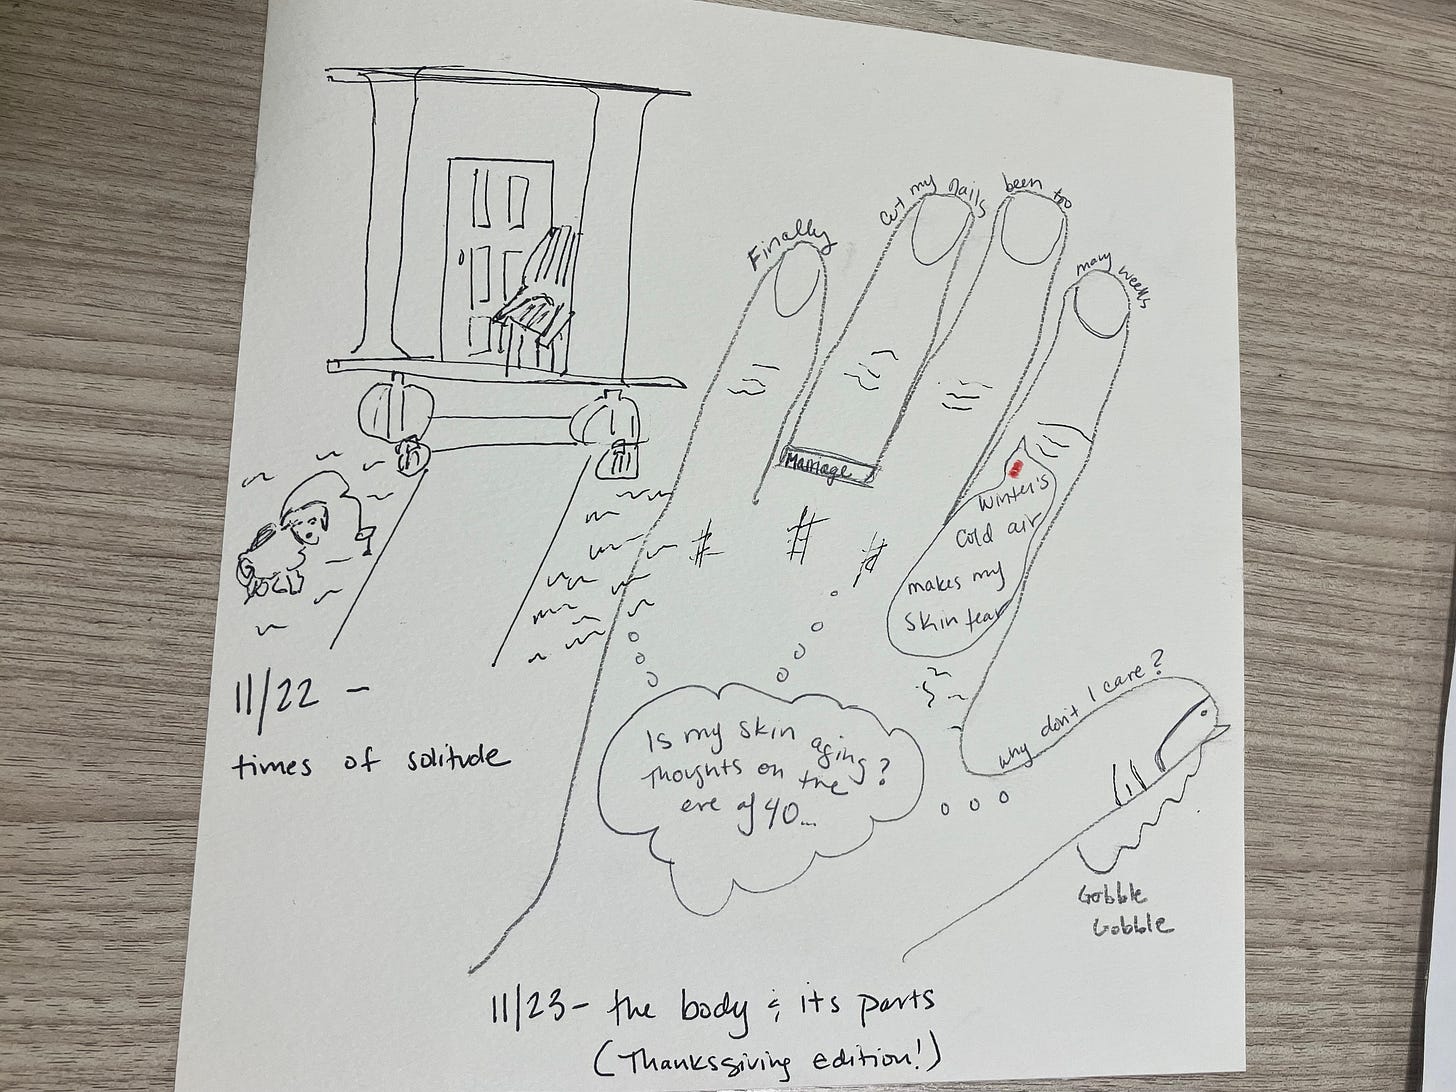 Finally
cut my nails
been too
many weeks
Marriage
Winter's
cold air
makes my
skin tear
why don't I care?
Is my skin aging
thoughts on the ?
eve of 40...
Gobble
Gobble
11/22 -
times of solitude
11/23 - the body & its parts
(Thanksgiving edition!)